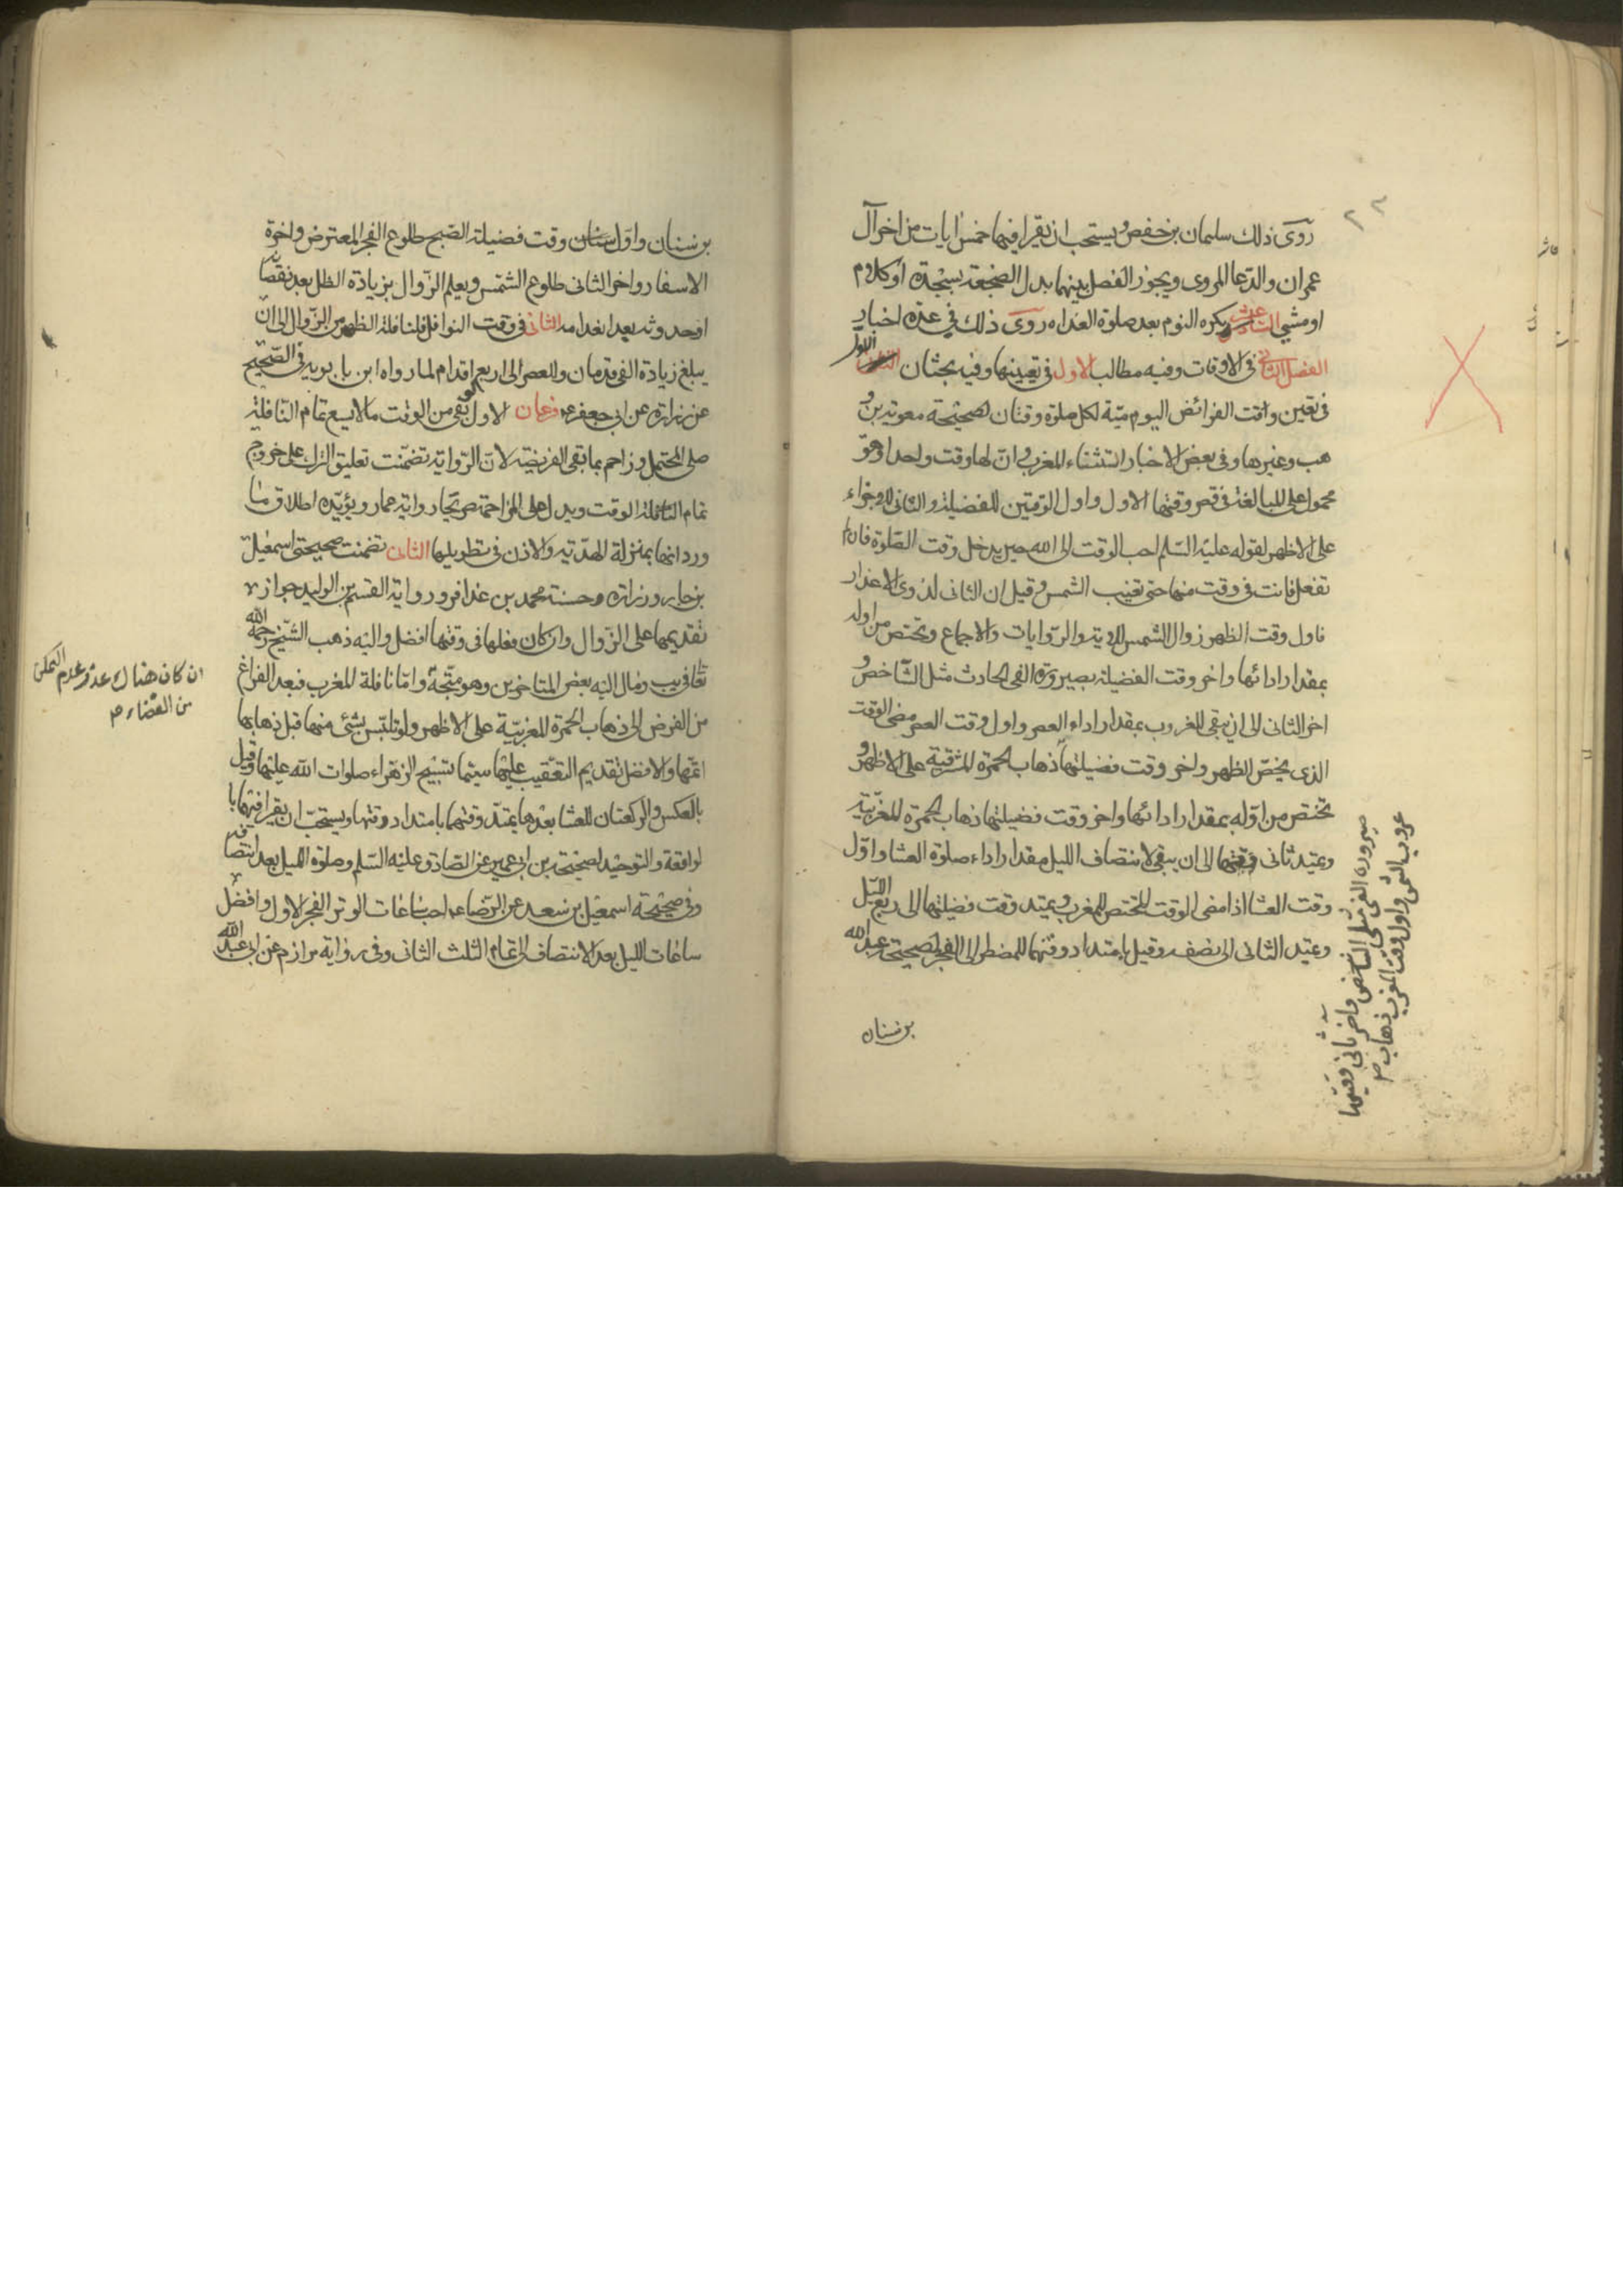 ٢٣
روى ذلك سليمان بن حفص ويستحب ان يقرا فيهما خمس ايات من اخر آل
عمران والدعا المروى ويجوز الفصل بينهما بدل الضجعة بسجدة او كلام
او مشى السادس عشر يكره النوم بعد صلوة الغداه روى ذلك فى عدة اخبار
الفصل الثانى فى الاوقات وفيه مطالب الاول فى تعيينها وفيه بحثان الاول
فى تعين واقت الفرائض اليوميّة لكل صلوة وقتان لصحيحة معوية بن و
هب وغيرها وفى بعض الاخبار استثناء المغرب وانّ لها وقت واحدا وهو
محمول على المبالغة فى قصر وقتها الاول واول الوقتين للفضيلة والثانى للاجزاء
على الاظهر لقوله عليه السّلم احب الوقت الى الله حين يدخل وقت الصّلوة فان لم
تفعل فانت فى وقت منهما حتى تغيب الشمس وقيل ان الثانى لذوى الاعذار
فاول وقت الظهر زوال الشمس للاية والرّوايات والاجماع وتختص من اوله
بمقدار ادائها واخر وقت الفضيلة بصيرورة الفى الحادث مثل الشّاخص و
اخر الثانى الى ان يبقى للغروب بمقدار اداء العصر واول وقت العصر مضى الوقت
الذى يختصّ الظهر واخر وقت فضيلتها ذهاب الحمرة المشرقية على الاظهر و
تختص من اوّله بمقدار ادائها واخر وقت فضيلتها ذهاب الحمرة المغربيّة
ويمتد ثانى وقتها الى ان يبقى لانتصاف الليل مقدار اداء صلوة العشا واوّل
وقت العشا اذا مضى الوقت المختص للمغرب ويمتد وقت فضيلتها الى ربع اللّيل
ويمتد الثانى الى نصفه وقيل بامتداد وقتهما للمضطر الى الفجر لصحيحتى عبد الله
بن سنان
صيرورة الفى مثلى الشاخص واخر ثانى وقتيها
غروب الشمس واول وقت المغرب ذهاب
بن سنان واوّل وقت فضيلة الصّبح طلوع الفجر المعترض واخرة
الاسفار واخر الثانى طلوع الشّمس ويعلم الزّوال بزيادة الظل بعد نقصا
او حدوثه بعد انعدامه الثانى فى وقت النوافل فلنافلة الظهر من الزّوال الى ان
يبلغ زيادة الفى قدمان وللعصر الى اربع اقدام لما رواه ابن بابويه فى الصّحيح
عن زرارة عن ابى جعفر ع فرعان الاول لو بقى من الوقت ما لا يسع تمام النّافلة
صلى المحتمل وزاحم بما بقى الفريضة لانّ الرّواية تضمّنت تعليق الترك على خروج
تمام النّافلة الوقت ويدل على المزاحمة صريحا رواية عمار ويؤيّده اطلاق ما
ورد انها بمنزلة الهديّة والاذن فى تطويلها الثانى تضمنت صحيحتى اسمعيل
بن جابر وزرارة وحسنة محمد بن عذافر ورواية القسم بن الوليد جواز
تقديمها على الزّوال وان كان فعلها فى وقتها افضل واليه ذهب الشّيخ رحمه الله
فى يب ومال اليه بعض المتاخرين وهو متّجة وامّا نافلة المغرب فبعد الفراغ
من الفرض الى ذهاب الحمرة المغربيّة على الاظهر ولو تلبّس بشئ منها قبل ذهابها
اتمّها والافضل تقديم التعقيب عليها سيّما تسبيح الزهراء صلوات الله عليها وقيل
بالعكس والركعتان للعشا بعدها يمتدّ وقتهما بامتداد وقتها ويستحبّ ان يقرا فيهما با
لواقعة والتوحيد لصحيحة بن ابى عمير عن الصّادق عليه السّلم وصلوة الليل بعد انتصافه
وفى صحيحة اسمعيل بن سعد عن الرّضا ع احب ساعات الوتر الفجر الاول وافضل
ساعات الليل بعد الانتصاف الى تمام الثلث الثانى وفى رواية مرازم عن ابى عبد الله
ان كان هناك عذر وعدم التمكن
من القضاء